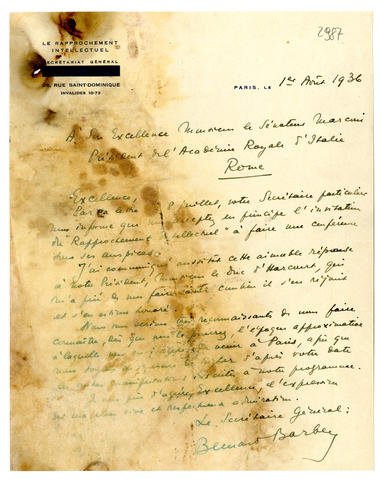 2987
LE RAPPROCHEMENT
INTELLECTUEL
SECRÉTARIAT GÉNÉRAL
RUE SAINT-DOMINIQUE
INVALIDES 10-73
PARIS, LE 1er Août 1936
A Son Excellence Monsieur le Sénateur Marconi
Président de l'Académie Royale d'Italie
Rome
Excellence,
Par sa lettre 8 juillet, votre Secrétaire particulier
nous informe que vous acceptez en principe l'invitation
du "Rapprochement Intellectuel" à faire une conférence
sous ses auspices.
J'ai communiqué aussitôt cette aimable réponse
à notre Président, Monsieur le Duc d'Harcourt, qui
m'a prié de vous faire savoir combien il s'en réjouit
et s'en estime honoré.
Nous vous serions reconnaissants de nous faire
connaître, dès que vous le pourrez, l'époque approximative
à laquelle vous venir à Paris, afin que
nous d'après votre date
les autres manifestations à notre programme.
Je vous prie d'agréer, Excellence, l'expression
de ma plus vive et respectueuse admiration.
Le Secrétaire Général:
Bernard Barbey